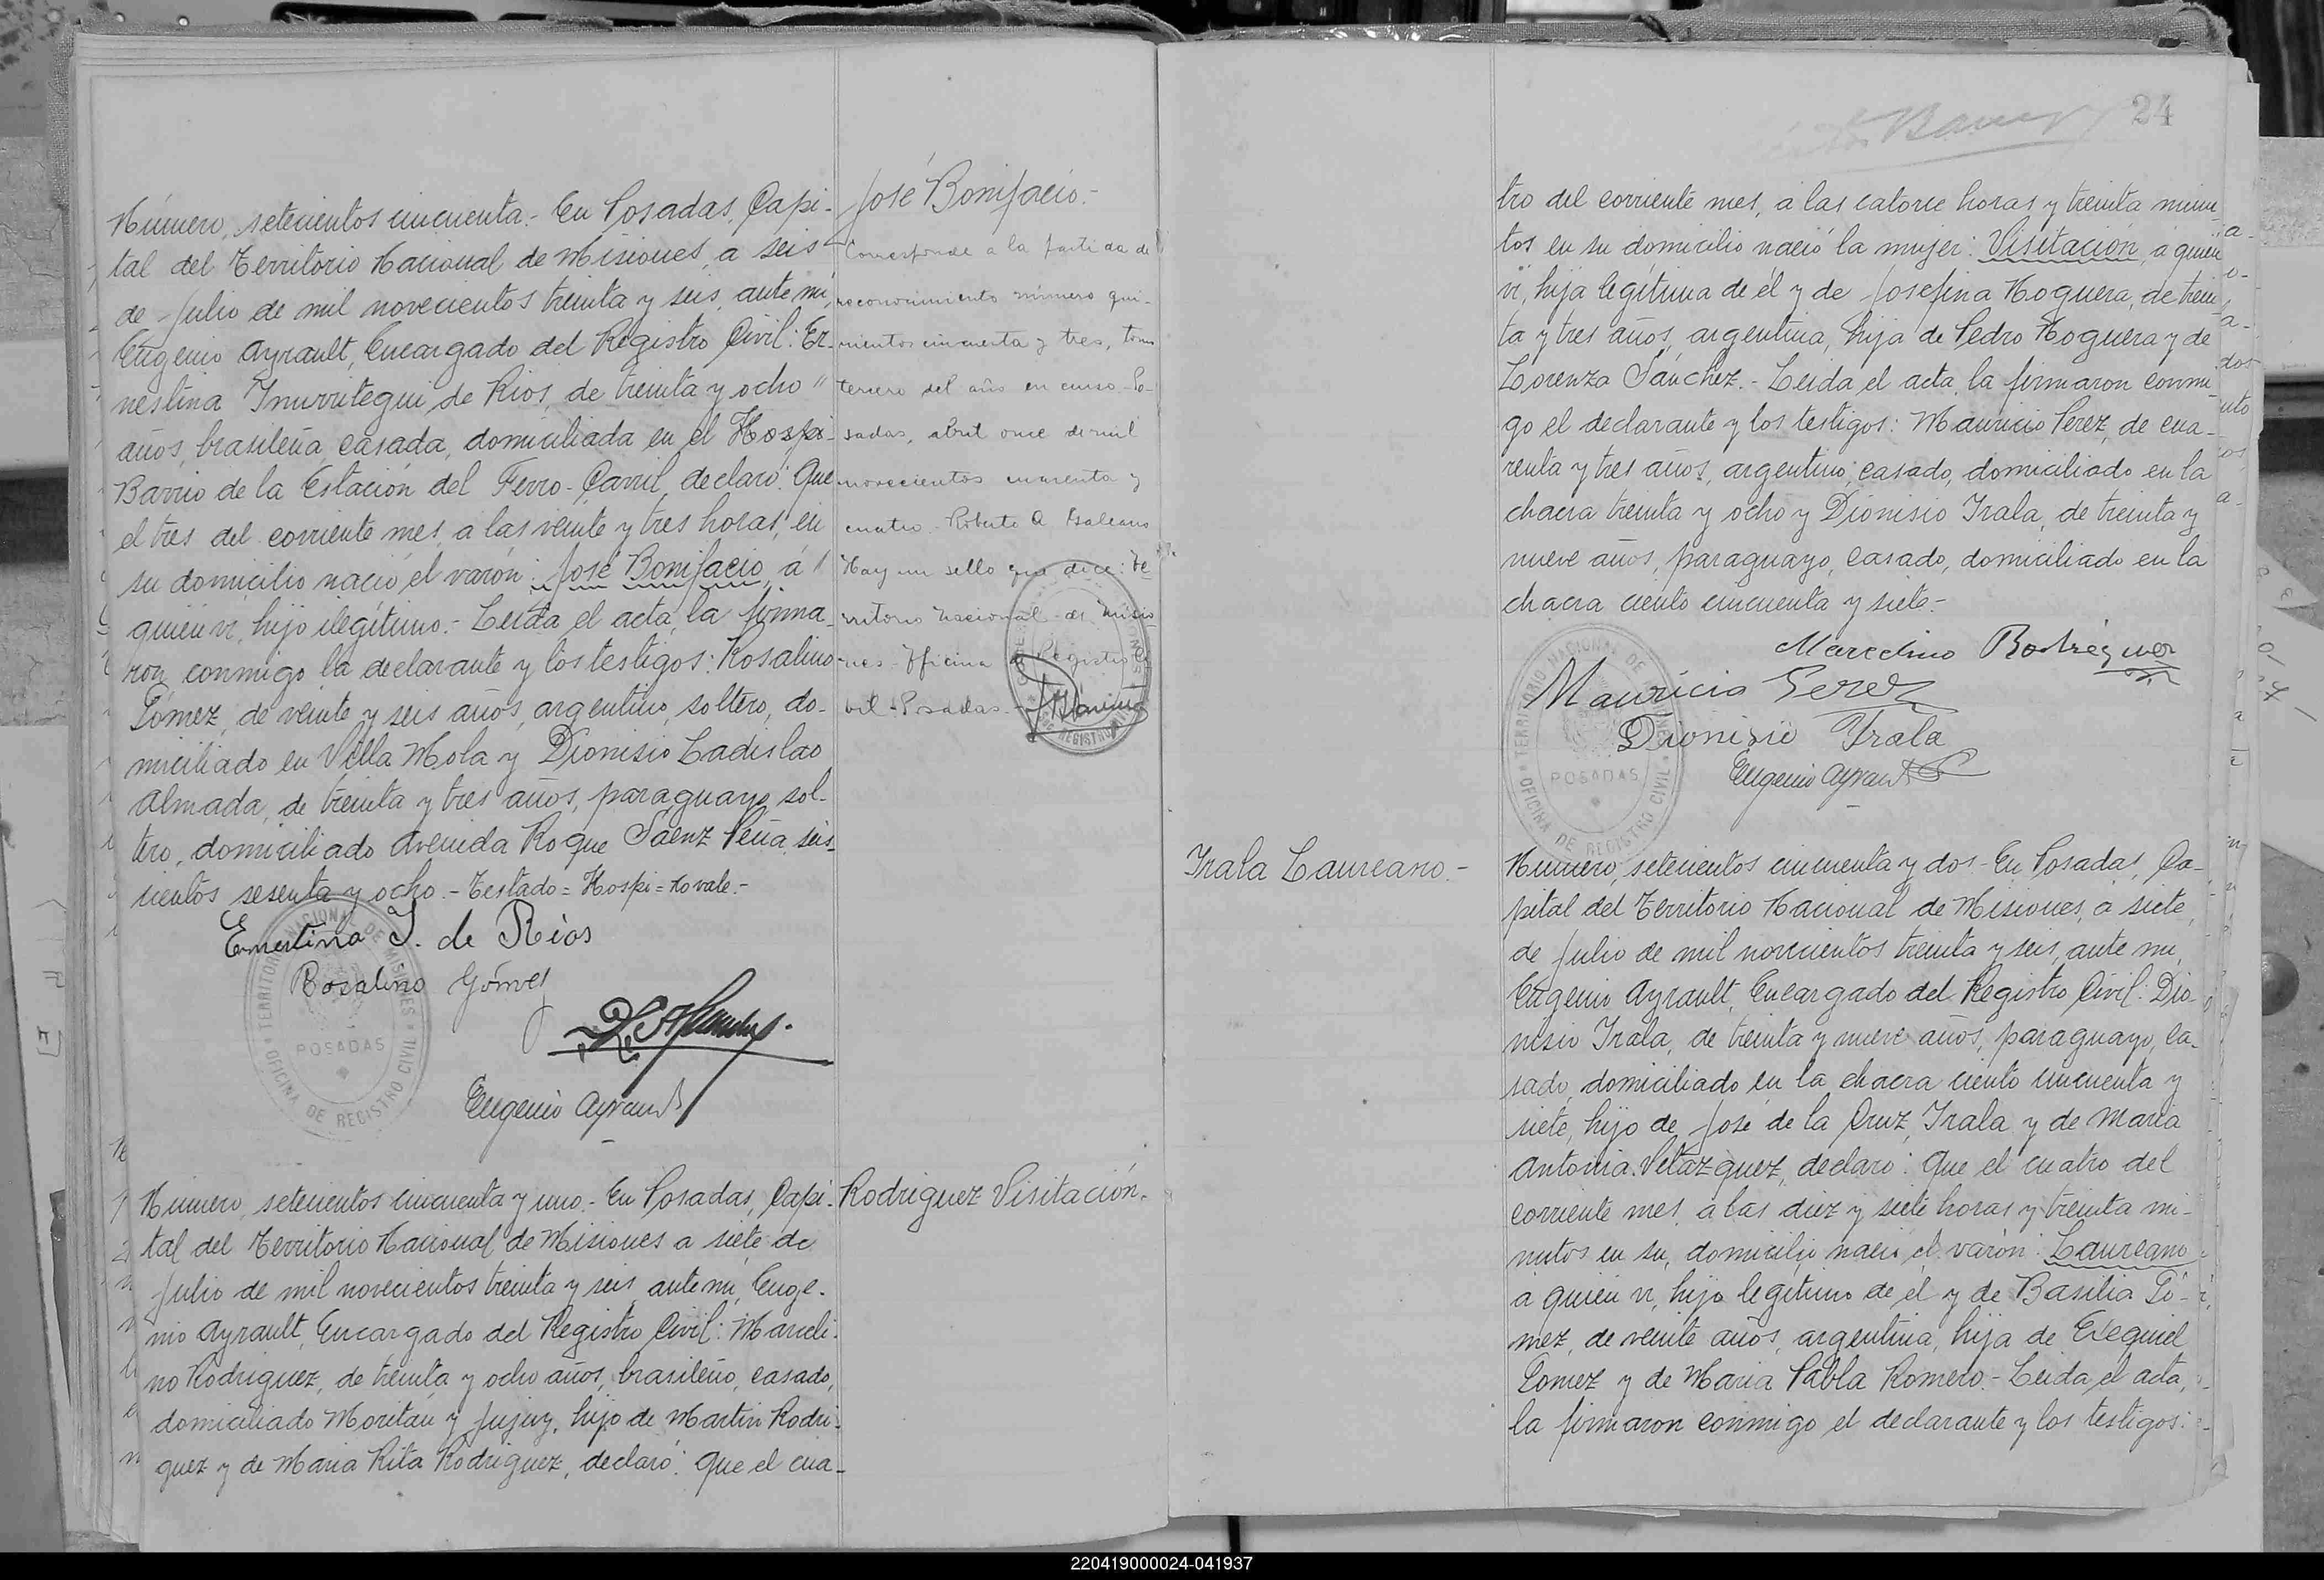 Número, setecientos cincuenta.- En Posadas, Capi-
tal del Territorio Nacional de Misiones, a seis
de Julio de mil novecientos treinta y seis, ante mi,
Eugenio Ayrault, Encargado del Registro Civil: Er-
nestina Inurritegui de Rios, de treinta y ocho "
años, brasileña, casada, domiciliada en el Hospi-
Barrio de la Estación del Ferro-Carril, declaró: Que
el tres del corriente mes, a las veinte y tres horas, en
su domicilio nació el varón: José Bonifacio, á
quién vi, hijo ilegítimo.- Leida el acta, la firma-
ron conmigo la declarante y los testigos: Rosalino
Gomez, de veinte y seis años, argentino, soltero, do-
miciliado en Villa Mola y Dionisio Ladislao
Almada, de treinta y tres años, paraguayo, sol-
tero, domiciliado Avenida Roque Sáenz Peña seis-
cientos sesenta y ocho.- Testado = Hospi = no vale.-
Ernestina I. de Rios
Rosalino Gómez
Eugenio Ayrault
TERRITORIO NACIONAL DE MISIONES
POSADAS
OFICINA DE REGISTRO CIVIL
José Bonifacio.-
Corresponde a la partida de
reconocimiento número qui-
nientos cincuenta y tres, tomo
tercero del año en curso. Po-
sadas, abril once de mil
novecientos cuarenta y
cuatro. Roberto A.
Hay un sello que dice: Te-
rritorio Nacional de Misio-
nes. Oficina Registro Ci-
vil - Posadas.-
Número, setecientos cincuenta y uno.- En Posadas, Capi-
tal del Territorio Nacional de Misiones a siete de
Julio de mil novecientos treinta y seis, ante mi, Euge-
nio Ayrault, Encargado del Registro Civil: Marceli-
no Rodriguez, de treinta y ocho años, brasileño, casado,
domiciliado Moritán y Jujuy, hijo de Martin Rodri-
guez y de Maria Rita Rodriguez, declaró: Que el cua-
Rodriguez Visitación.-
24
tro del corriente mes, a las catorce horas y treinta minu-
tos en su domicilio nació la mujer: Visitación, á quién
vi, hija legítima de él y de Josefina Noguera, de trein-
ta y tres años, argentina, hija de Pedro Noguera y de
Lorenza Sánchez.- Leida el acta, la firmaron conmi-
go el declarante y los testigos: Mauricio Perez, de cua-
renta y tres años, argentino, casado, domiciliado en la
chacra treinta y ocho y Dionisio Irala, de treinta y
nueve años, paraguayo, casado, domiciliado en la
chacra ciento cincuenta y siete.-
Marcelino Rodriguez
Mauricio Perez
Dionisio Irala
Eugenio Ayrault
TERRITORIO NACIONAL DE MISIONES
POSADAS
OFICINA DE REGISTRO CIVIL
Irala Laureano.-
Número, setecientos cincuenta y dos.- En Posadas, Ca-
pital del Territorio Nacional de Misiones, a siete
de Julio de mil novecientos treinta y seis, ante mi,
Eugenio Ayrault, Encargado del Registro Civil: Dio-
nisio Irala, de treinta y nueve años, paraguayo, ca-
sado, domiciliado en la chacra ciento cincuenta y
siete, hijo de José de la Cruz Irala y de Maria
Antonia Velázquez, declaró: Que el cuatro del
corriente mes, a las diez y siete horas y treinta mi-
nutos en su domicilio nació el varón: Laureano
á quién vi, hijo legítimo de él y de Basilia Gó-
mez, de veinte años, argentina, hija de Exequiel
Gomez y de Maria Pabla Romero.- Leida el acta,
la firmaron conmigo el declarante y los testigos:
220419000024-041937